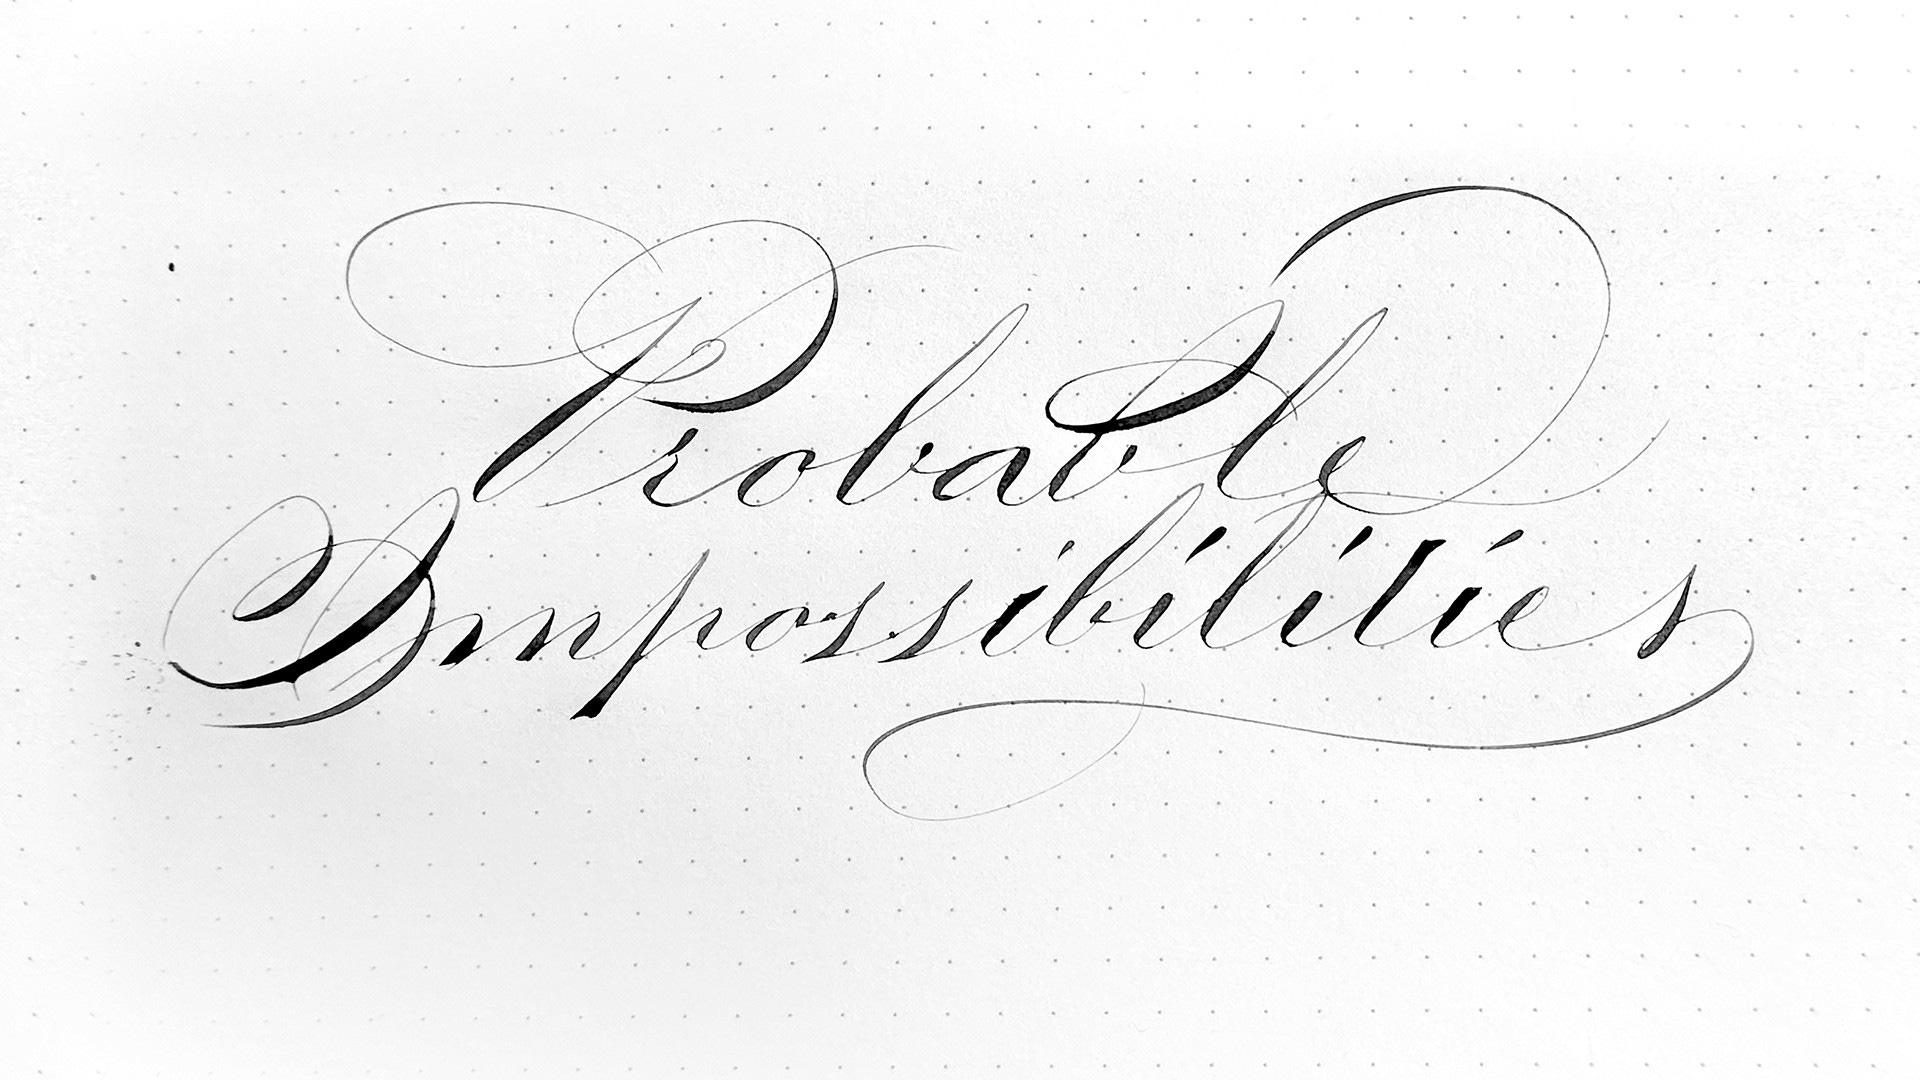 Probable
Impossibilities